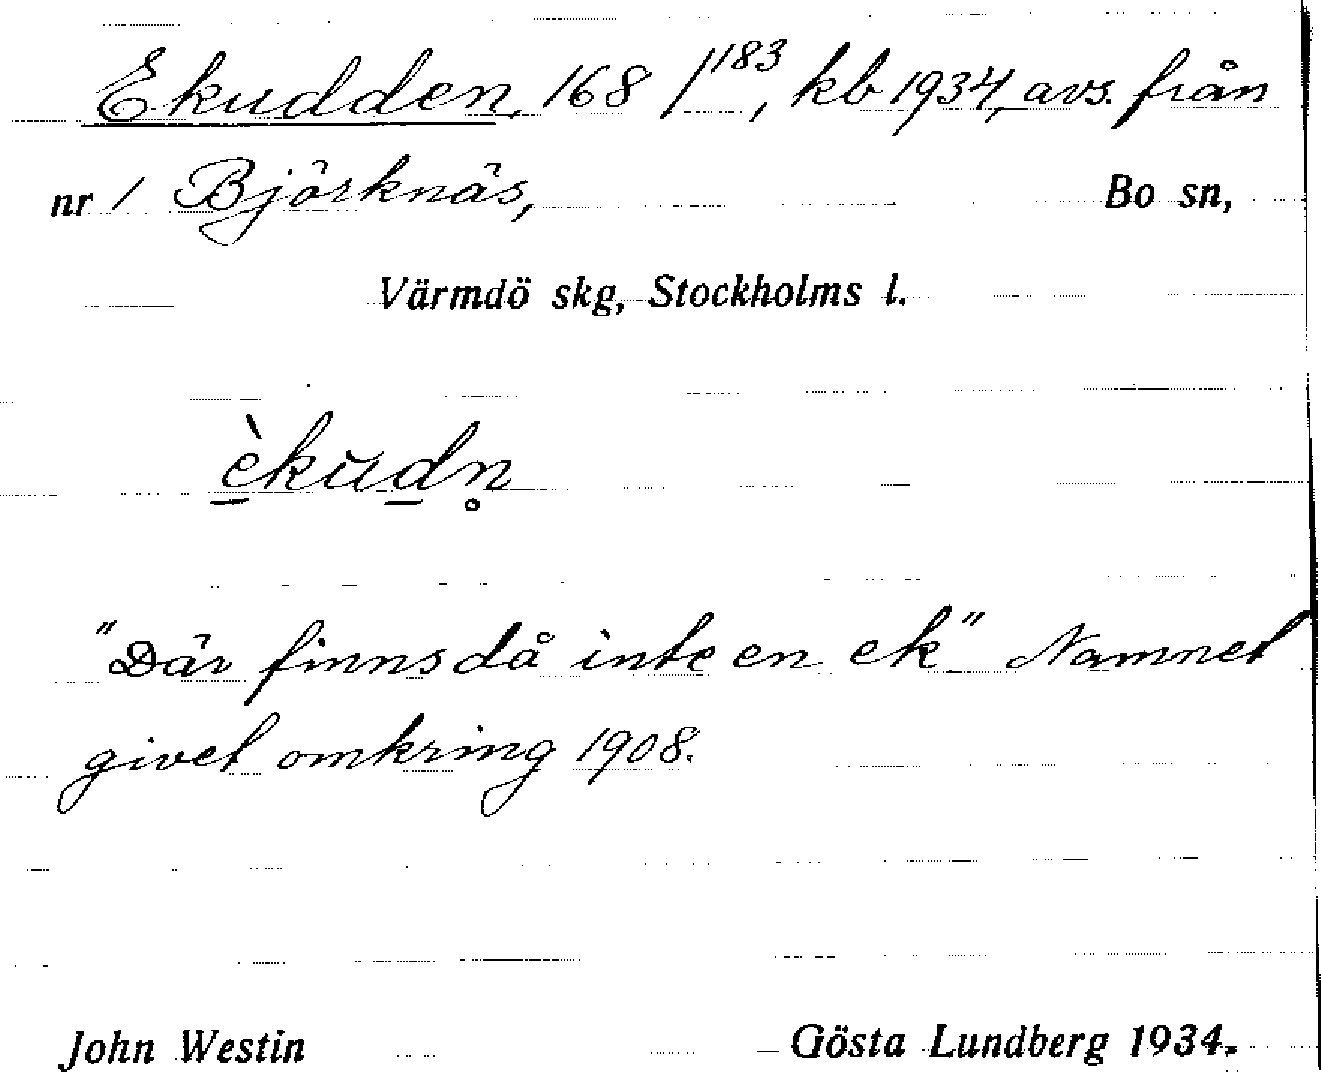 Ekudden, 168/183, kb 1934, avs. från
nr 1 Björknäs, Bo sn,
Värmdö skg, Stockholms l.
è̲kŭd̲n̥
"Där finns då inte en ek" Namnet
givet omkring 1908.
John Westin Gösta Lundberg 1934.